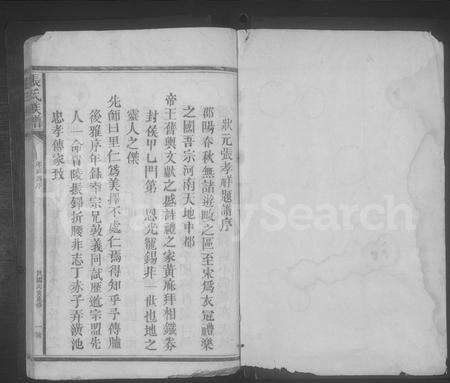 狀元張孝祥題譜序
邵陽春秋無諸逆畋之區至宋為衣冠禮樂
之國吾宗河南天地中都
帝王舊輿文獻之越詩禮之家黃麻拜相鐵券
封侯甲乙門第 恩光寵錫非一世也地之
靈人之傑
先師曰里仁為美擇不處仁焉得知乎予傳臚
後雅 年錄 宗兄敦義同試歷道宗盟先
人一命 陵振鐸折腰非志丁赤子弄潢池
忠孝傳家 
張氏族譜
FamilySearch